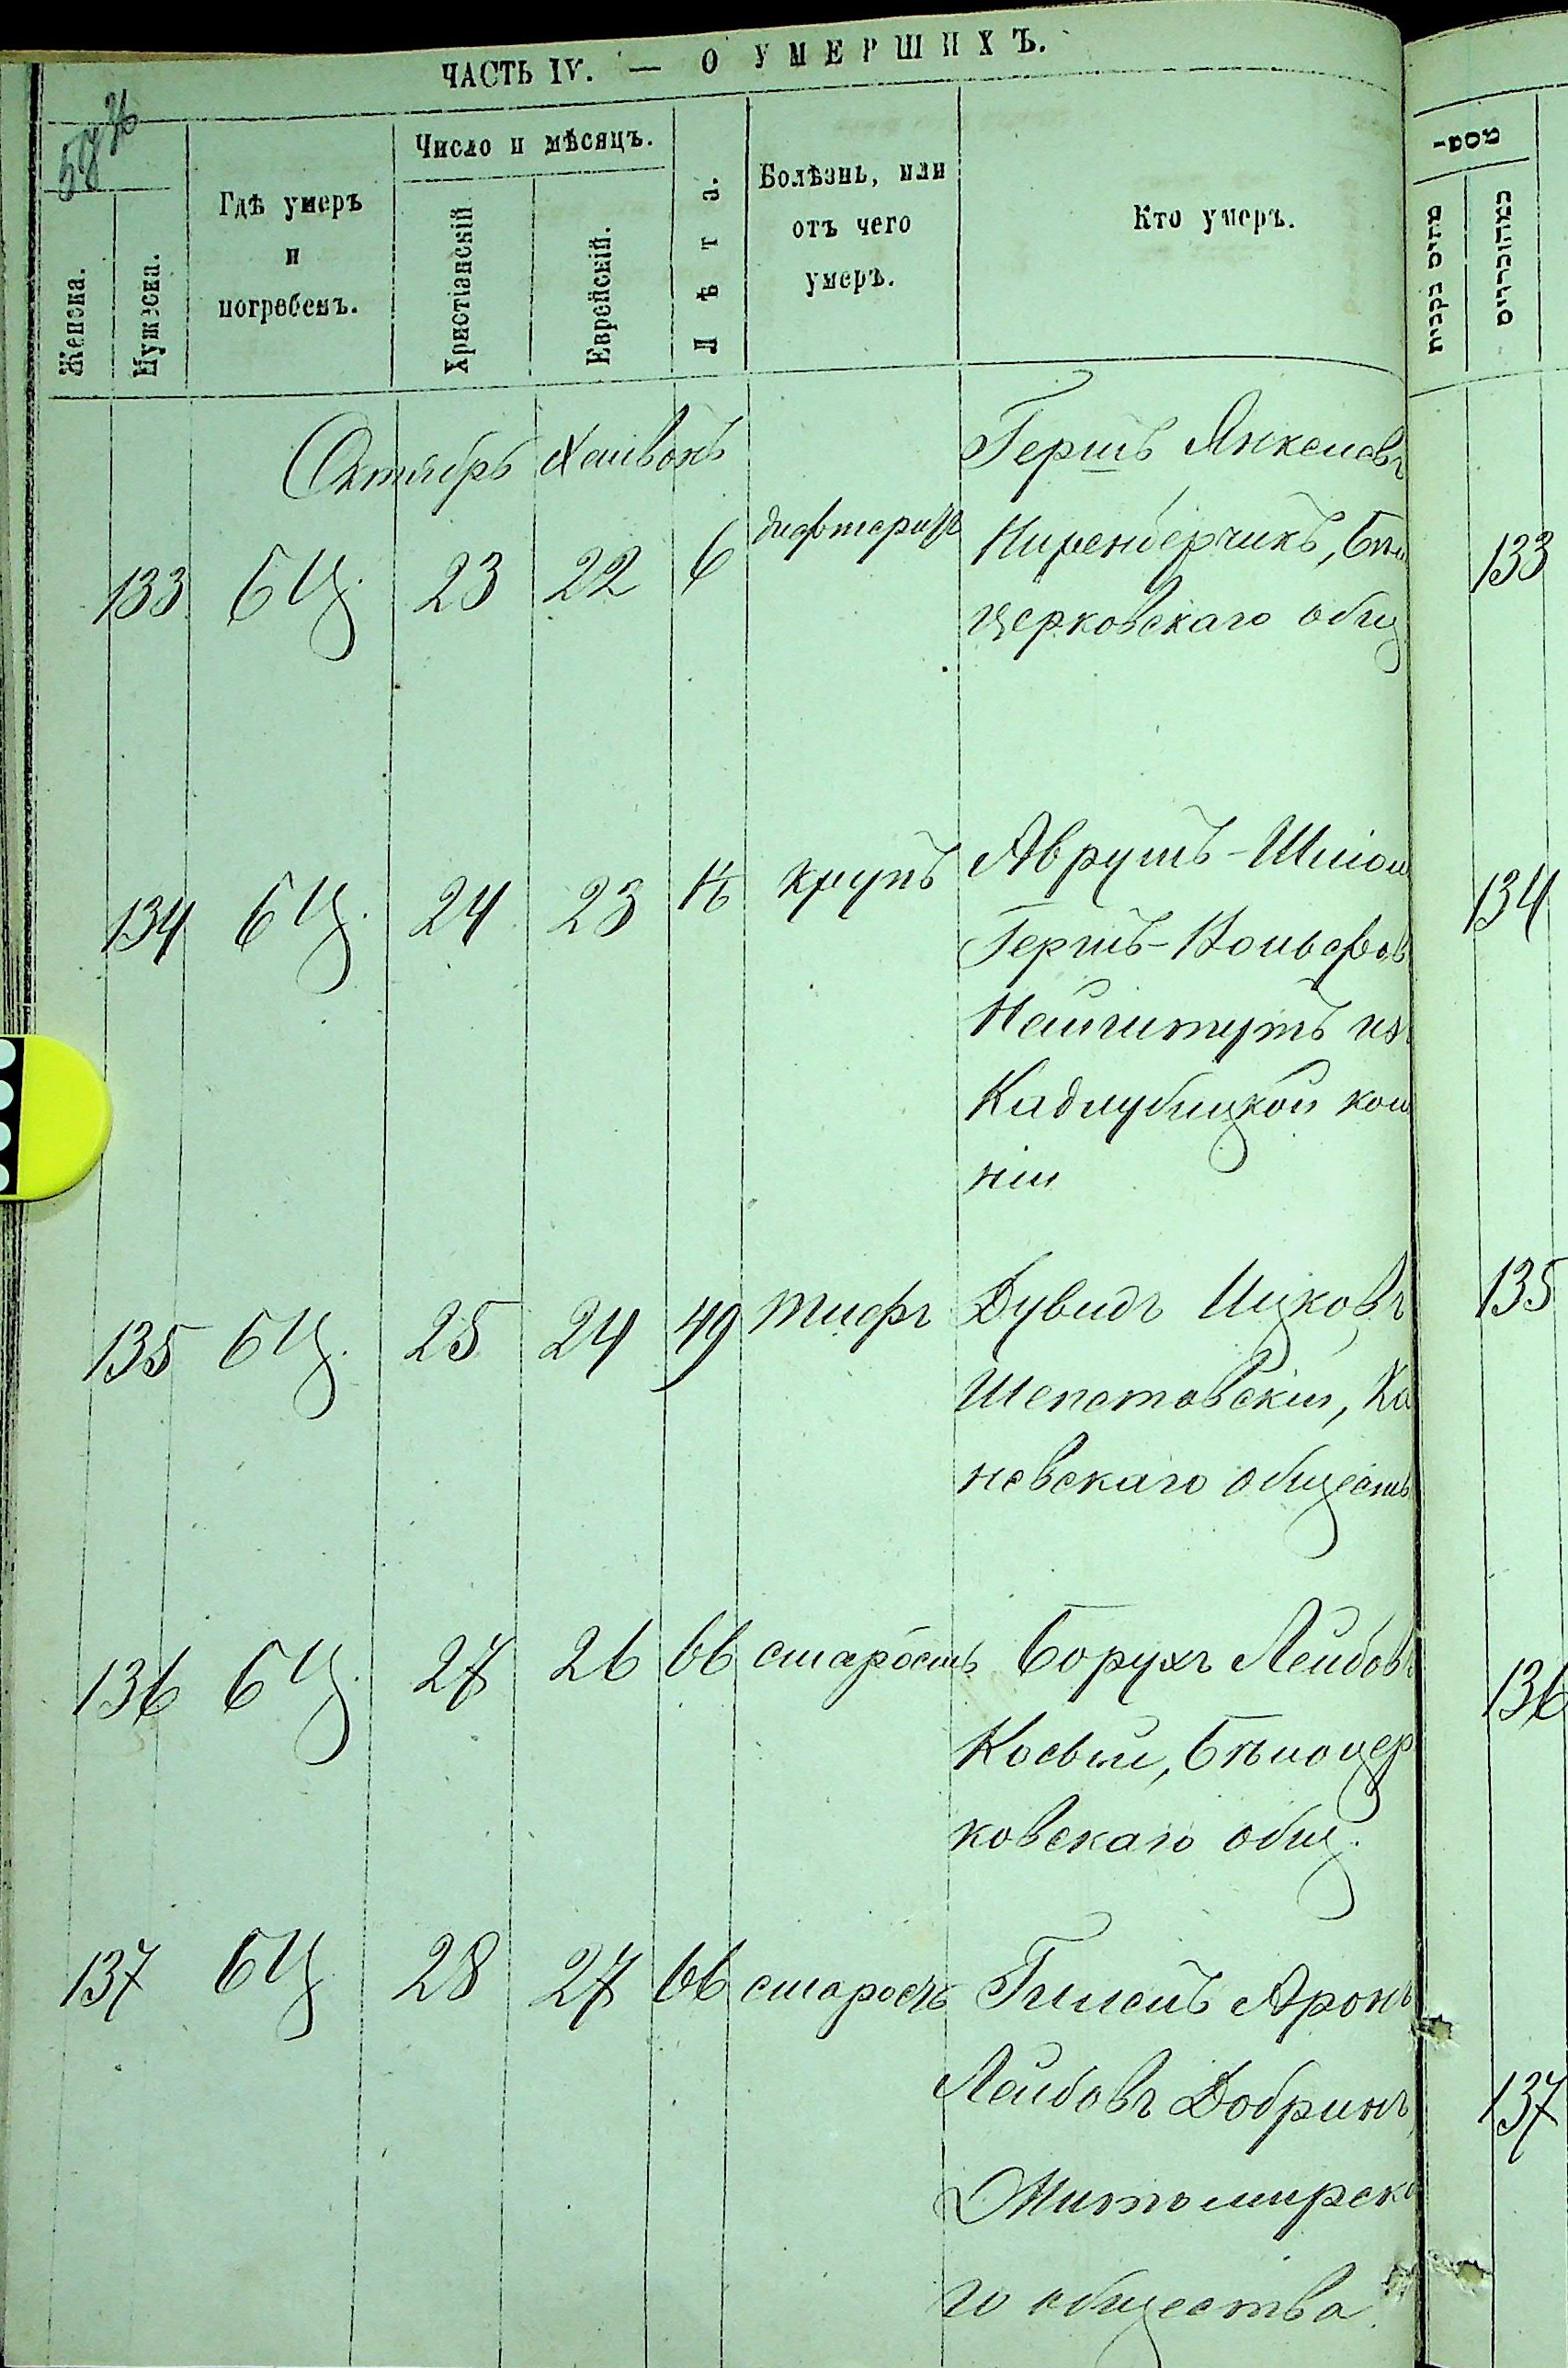 ЧАСТЬ IV. — О УМЕРШИХЪ.
Женска.
Мужеска.
Гдѣ умеръ
и
погребенъ.
Число и мѣсяцъ.
Христіанскій
Еврейскій.
Лѣта.
Болѣзнь, или
отъ чего
умеръ.
Кто умеръ.
Октябрь
Гершъ Янкелевъ
133 БЦ. 23 22 6 дифтеритъ Ниренберчикъ, Бѣло
церковскаго общ
133
134 БЦ. 24 23 крупъ Аврумъ-Шлiом
Гершъ-Вольфов
из
Кадлубицкой коло
ніи
134
135 БЦ. 25 24 49 тифъ Дувидъ Ицковъ
Шепетовскій, Ка
невскаго обществ
135
136 БЦ. 27 26 66 старость Борухъ Лейбовъ
Косый, Бѣлоцер
ковскаго общ.
136
137 БЦ 28 27 66 старость Аронъ
Лейбовъ Добринъ,
Житомирска
го общества.
137